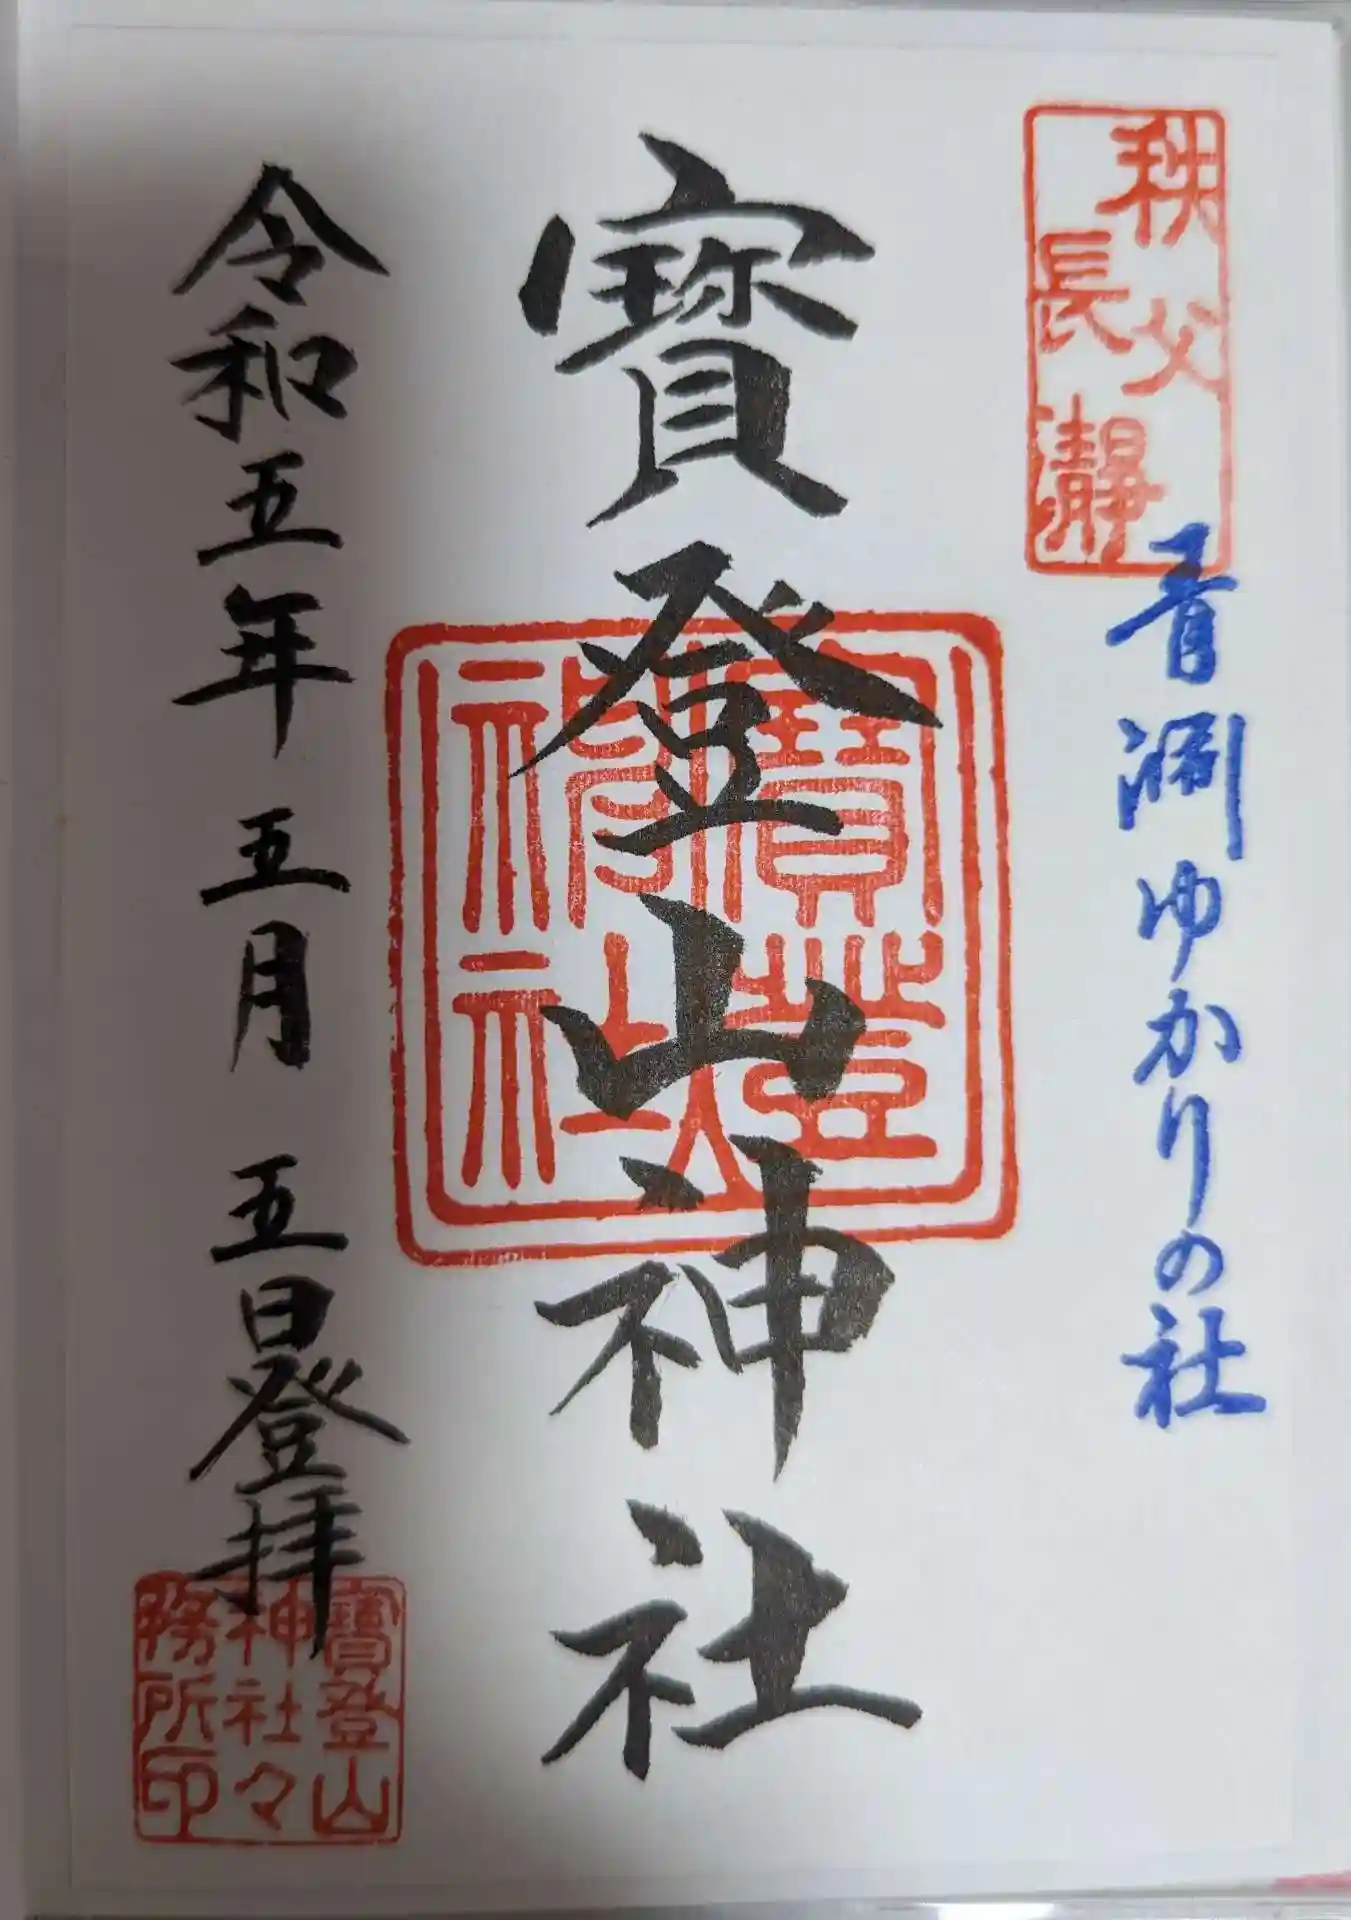 秩父
長瀞
青淵ゆかりの社
寶登山神社
寶登山
神社
令和五年五月五日登拝
寶登山
神社々
務所印